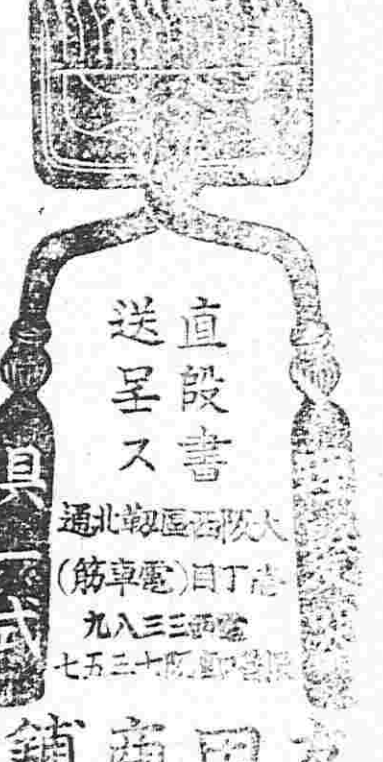 直段書
送呈ス
大阪西區靱北通
丁目(電車筋)
西三三八九
阪十三五七
具一式
田商鋪